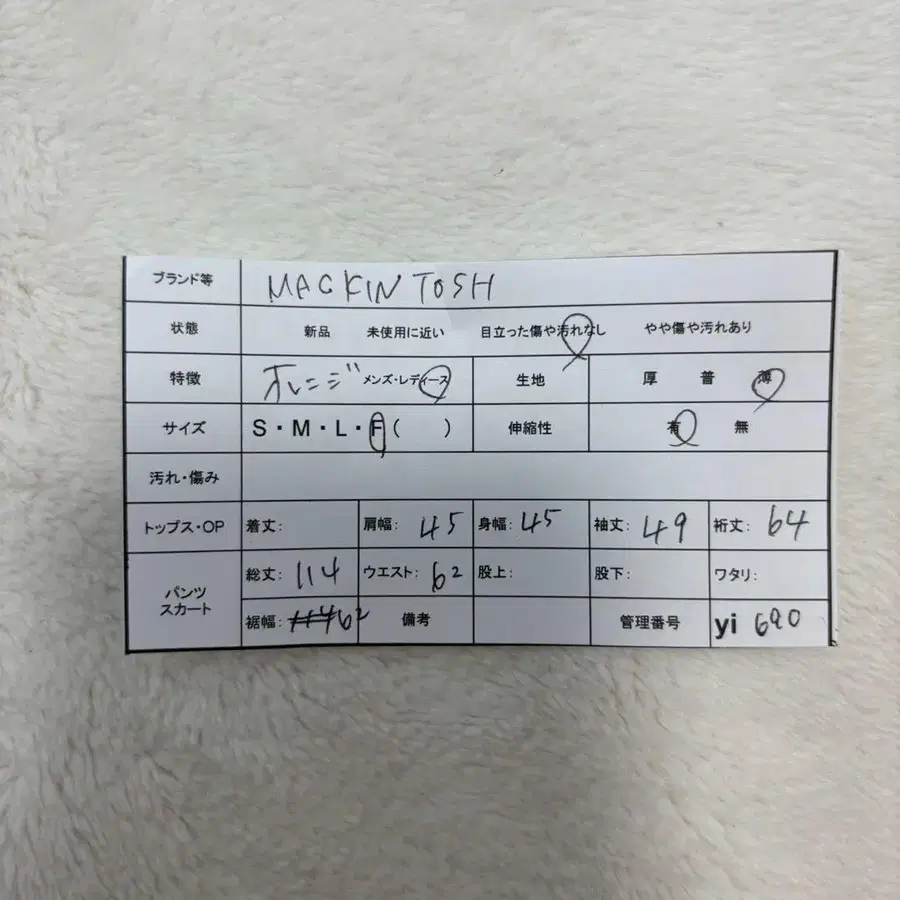 ブランド等 MACKINTOSH
状態 新品 未使用に近い 目立った傷や汚れなし やや傷や汚れあり
特徴 オレンジ メンズ・レディース 生地 厚 普 薄
サイズ S・M・L・F( ) 伸縮性 有 無
汚れ・傷み
トップス・OP 着丈: 肩幅: 45 身幅: 45 袖丈: 49 裄丈: 64
パンツ スカート 総丈: 114 ウエスト: 62 股上: 股下: ワタリ:
裾幅: 62 備考 管理番号 yi 690